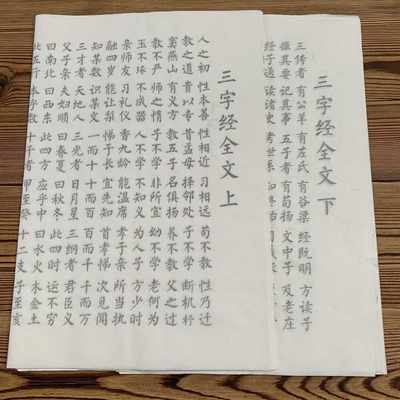 三字经全文 下
三传者 有公羊 有左氏 有谷梁 经既明 方读子
撮其要 记其事 五子者 有荀扬 文中子 及老庄
经子通 读诸史 考世系 知终始
三字经全文 上
人之初 性本善 性相近 习相远 苟不教 性乃迁
教之道 贵以专 昔孟母 择邻处 子不学 断机杼
窦燕山 有义方 教五子 名俱扬 养不教 父之过
教不严 师之惰 子不学 非所宜 幼不学 老何为
玉不琢 不成器 人不学 不知义 为人子 方少时
亲师友 习礼仪 香九龄 能温席 孝于亲 所当执
融四岁 能让梨 悌于长 宜先知 首孝悌 次见闻
知某数 识某文 一而十 十而百 百而千 千而万
三才者 天地人 三光者 日月星 三纲者 君臣义
父子亲 夫妇顺 曰春夏 曰秋冬 此四时 运不穷
曰南北 曰西东 此四方 应乎中 曰水火 木金土
此五行 本乎数 十干者 甲至癸 十二支 子至亥